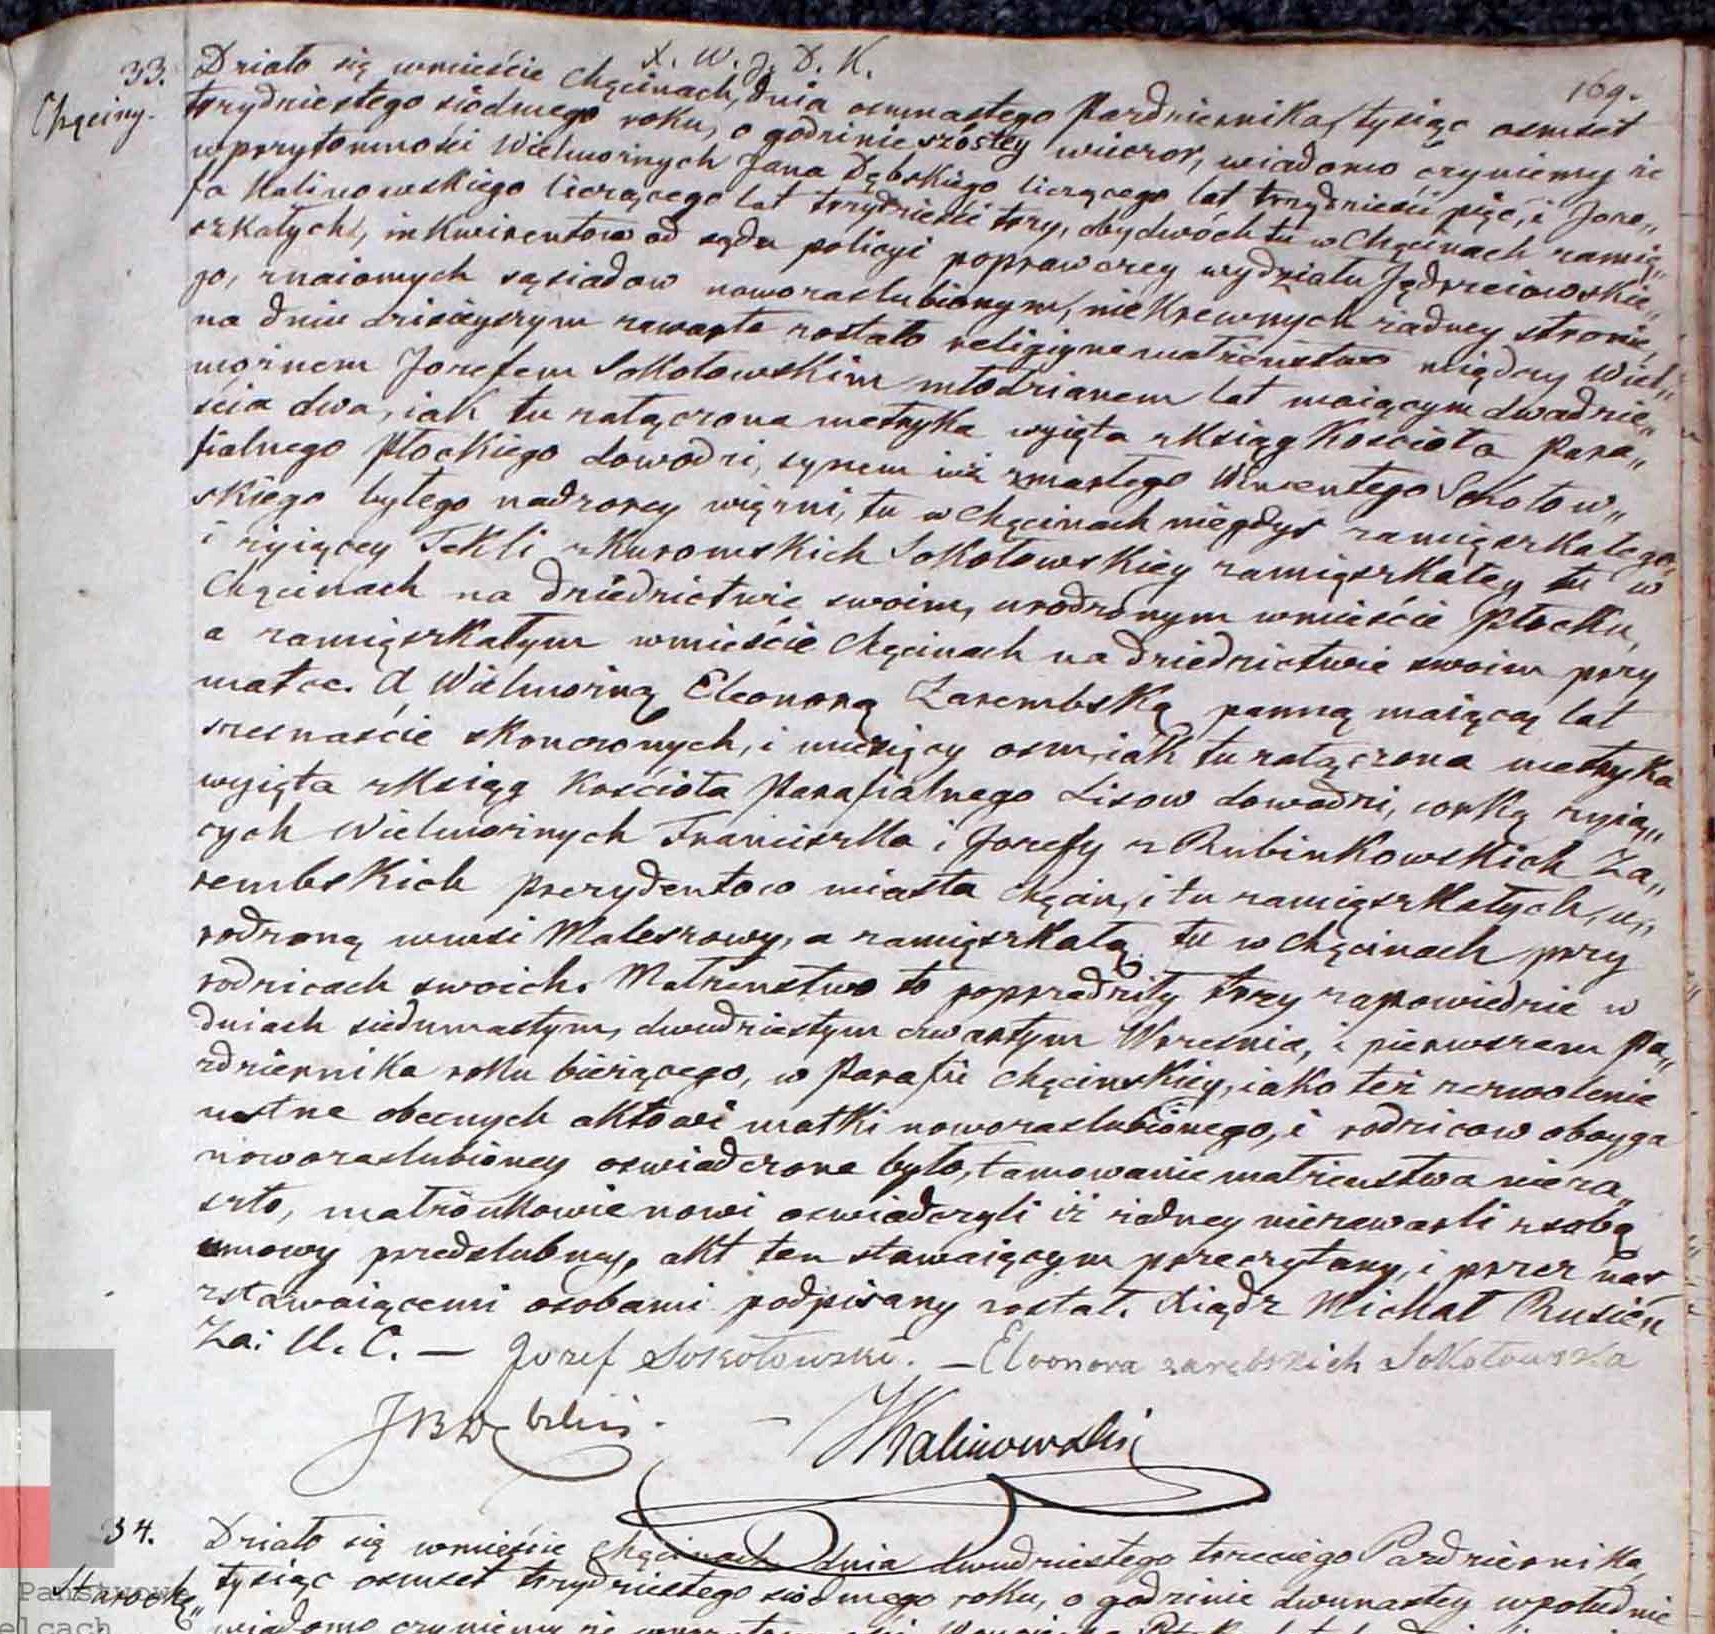 X. W. J. D. K.
169.
33. Działo się wmieście Chęcinach, dnia osmnastego Pazdziernika, tysiąc osmset
Chęciny. trzydziestego siodmego roku, o godzinie szóstey wieczor, wiadomo czyniemy że
wprzytomności Wielmożnych Jana Dębskiego liczącego lat trzydzieści pięć, i Joze„
fa Kalinowskiego liczącego lat trzydzieści trzy, obydwóch tu w Chęcinach zamię„
szkałych, inkwirentow od sądu policyi poprawczey wydziału Jędrzeiowskie„
go, znaiomych sąsiadow nowozaslubionym, niekrewnych żadney stronie,
na dniu dzisieyszym zawarte zostało religiyne małżeństwo między Wiel„
możnem Jozefem Sokołowskim młodzianem lat maiącym dwadzie„
ścia dwa, iak tu załączona metryka wyięta zksiąg Kościoła Para„
fialnego Płockiego dowodzi, synem iuż zmarłego Wincentego Sokołow„
skiego byłego nadzorcy więzni, tu w Chęcinach niegdys zamięszkałego,
i żyiącey Tekli zKurowskich Sokołowskiey zamięszkałey tu w
Chęcinach na dziedzictwie swoim, urodzonym wmieście Płocku,
a zamięszkałym wmieście Chęcinach na dziedzictwie swoim przy
matce. A Wielmożną Eleonorą Zarembską panną maiącą lat
szesnaście skonczonych, i miesięcy osm, iak tu załączona metryka
wyięta zKsiąg Kościoła Parafialnego Lisow dowodzi, corką żyią„
cych Wielmożnych Franciszka i Jozefy z Rubinkowskich Za„
rembskich prezydentow miasta Chęcin, i tu zamięszkałych, u„
rodzoną wewsi Maleszowy, a zamięszkałą tu w Chęcinach przy
rodzicach swoich. Małżenstwo to poprzedziły trzy zapowiedzie w
dniach siedmnastym, dwudziestym czwartym Wrzesnia, i pierwszem Pa„
zdziernika roku bieżącego, w Parafii Chęcinskiey, iako też zezwolenie
ustne obecnych aktowi matki nowozaslubionego, i rodzicow oboyga
nowozaslubioney oswiadczone było, tamowanie małżenstwa nieza„
szło, małżonkowie nowi oswiadczyli iż żadney niezawarli zsobą
umowy przedslubney, akt ten stawaiącym przeczytany, i przez nas
zstawaiącemi osobami podpisany został. Xiądz Michał Rusien
Za: U. C. — Jozef Sokołowski. — Eleonora zarębskich Sokołowska
JB Dębski. — JKalinowski
34. Działo się wmieście Chęcinach dnia dwudziestego trzeciego Pazdziernika,
tysiąc osmset trzydziestego siodmego roku, o godzinie dwunastey wpołudnie
wiadomo czyniemy że